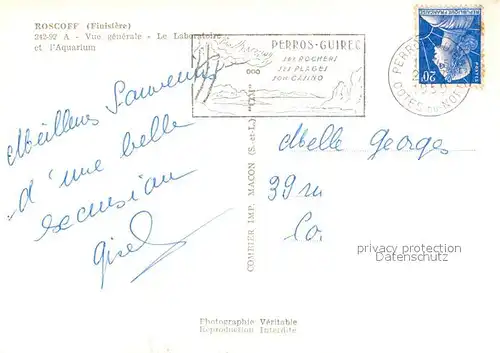 ROSCOFF (Finistère)
242-92 A - Vue générale - Le Laboratoire
et l'Aquarium
PERROS-GUIREC
SES ROCHERS
SES PLAGES
SON CASINO
PERROS
COTES DU NORD
20F
POSTES
Meilleurs Souvenirs
d'une belle
excursion
Gisel
Melle Georges
39 ru
Co.
COMBIER IMP. MACON (S.-et-L.) "CIM"
privacy protection
Datenschutz
Photographie Véritable
Reproduction Interdite